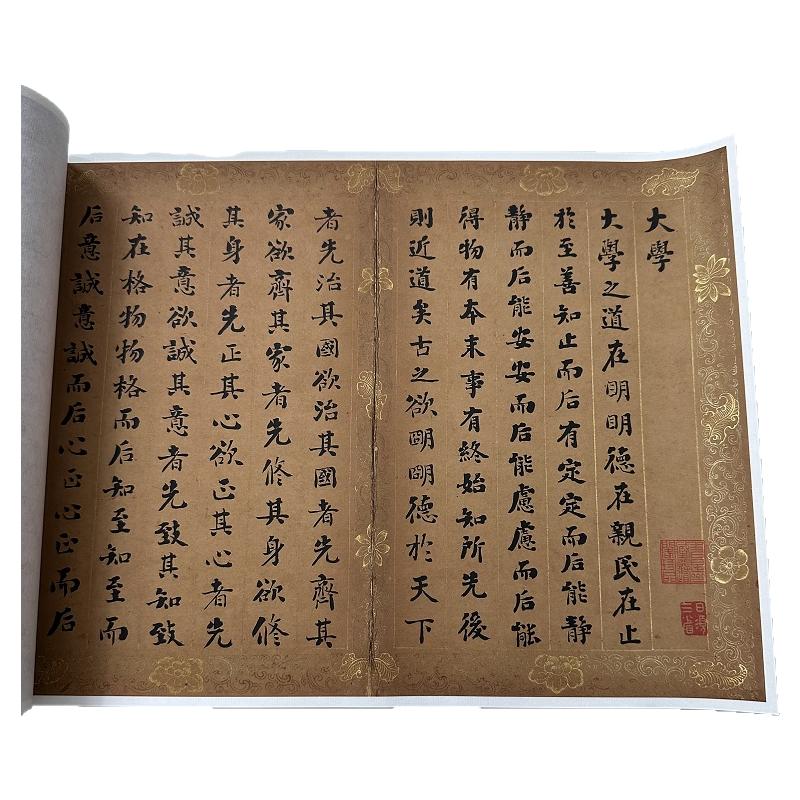 大學
大學之道在明明德在親民在止
於至善知止而后有定定而后能靜
靜而后能安安而后能慮慮而后能
得物有本末事有終始知所先後
則近道矣古之欲明明德於天下
者先治其國欲治其國者先齊其
家欲齊其家者先修其身欲修
其身者先正其心欲正其心者先
誠其意欲誠其意者先致其知致
知在格物物格而后知至知至而
后意誠意誠而后心正心正而后